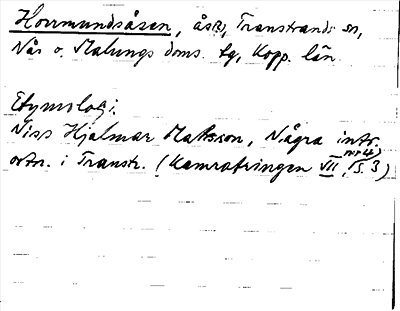 Horrmundsåsen, ås, Transtrands sn,
Nås o. Malungs doms. tg, Kopp. län.
Etymologi:
Niss Hjalmar Matsson, Några intr.
ortn. i Transtr. (Kamratringen VII, nr 4, s. 3)